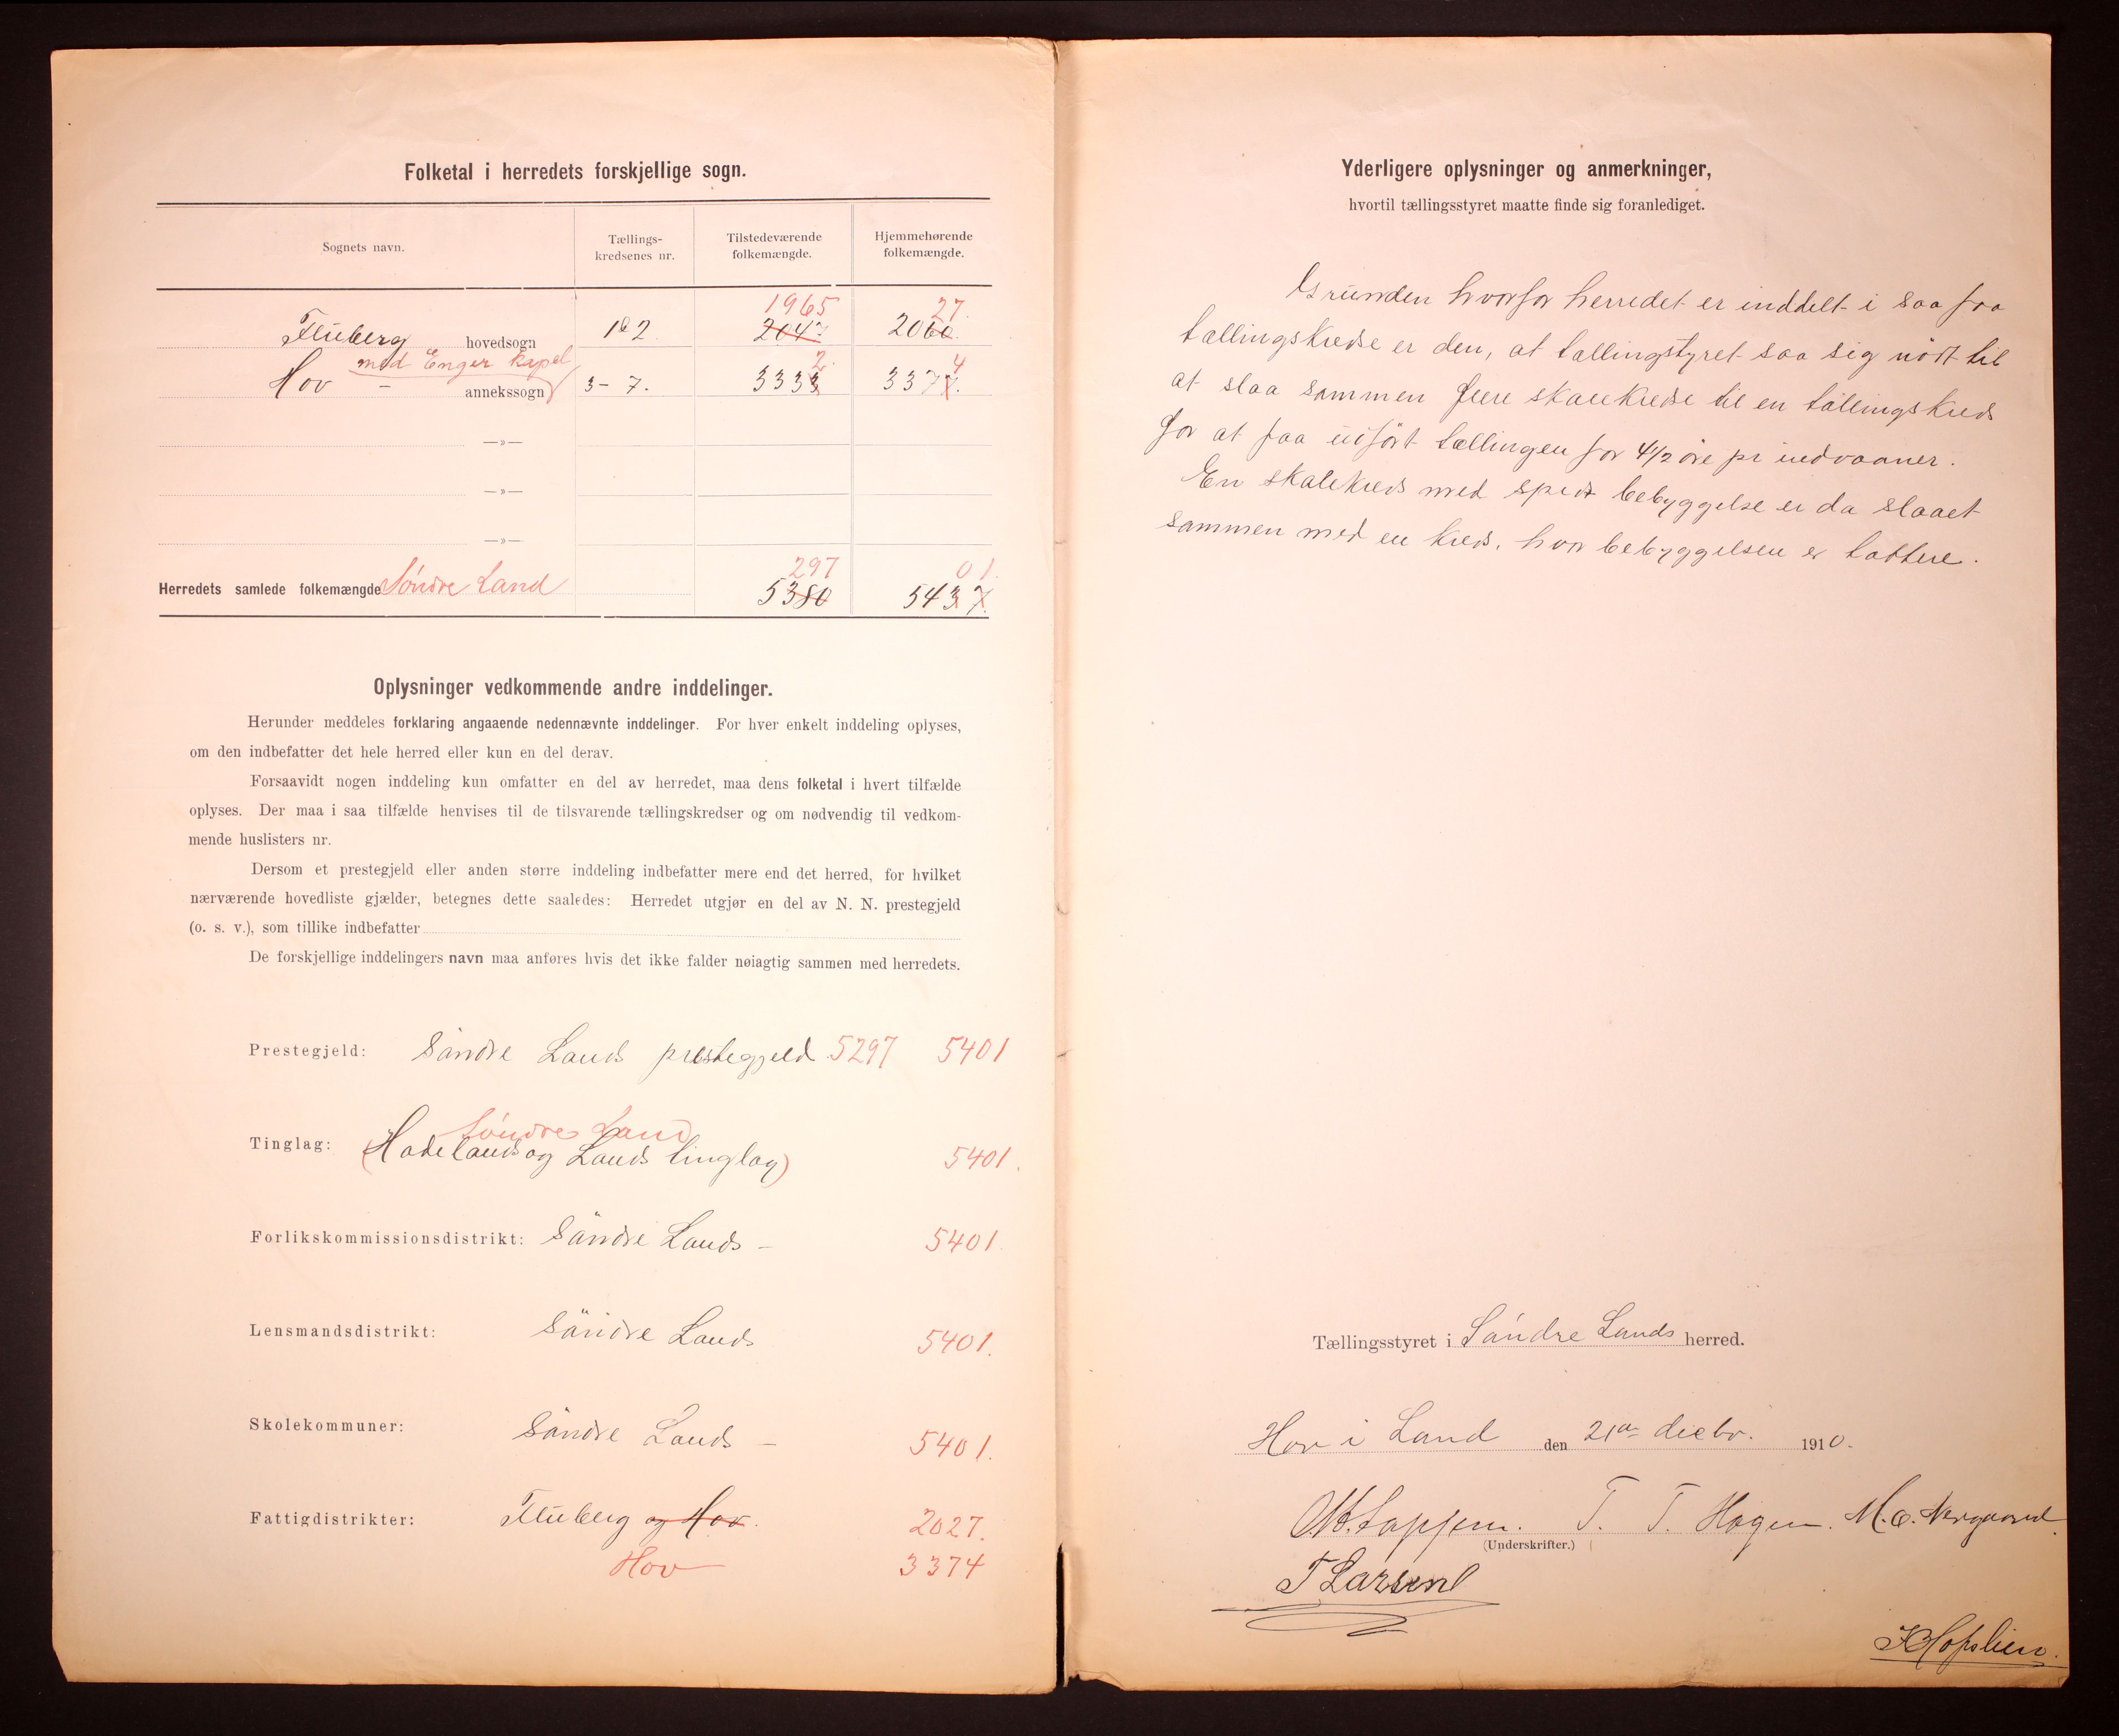 Folketal i herredets forskjellige sogn.
Sognets navn.
Tællings-
kredsenes nr.
Tilstedeværende
folkemængde.
Hjemmehørende
folkemængde.
1965 27.
Fluberg hovedsogn 1&2 2047 2060.
med Enger kapel 2 4
Hov - annekssogn 3-7. 3333 3377.
—»—
—»—
—»—
297 01.
Herredets samlede folkemængde Søndre Land 5380 5437.
Oplysninger vedkommende andre inddelinger.
Herunder meddeles forklaring angaaende nedennævnte inddelinger. For hver enkelt inddeling oplyses,
om den indbefatter det hele herred eller kun en del derav.
Forsaavidt nogen inddeling kun omfatter en del av herredet, maa dens folketal i hvert tilfælde
oplyses. Der maa i saa tilfælde henvises til de tilsvarende tællingskredser og om nødvendig til vedkom-
mende huslisters nr.
Dersom et prestegjeld eller anden større inddeling indbefatter mere end det herred, for hvilket
nærværende hovedliste gjælder, betegnes dette saaledes: Herredet utgjør en del av N. N. prestegjeld
(o. s. v.), som tillike indbefatter
De forskjellige inddelingers navn maa anføres hvis det ikke falder nøiagtig sammen med herredets.
Prestegjeld: Söndre Lands prestegjeld 5297 5401
Søndre Land
Tinglag: (Hadelands og Lands tinglag) 5401.
Forlikskommissionsdistrikt: Söndre Lands - 5401.
Lensmandsdistrikt: Söndre Lands 5401.
Skolekommuner: Söndre Lands - 5401.
Fattigdistrikter: Fluberg og Hov. 2027.
Hov 3374
Yderligere oplysninger og anmerkninger,
hvortil tællingsstyret maatte finde sig foranlediget.
Grunden hvorfor herredet er inddelt i saa faa
tællingskredse er den, at tællingstyret saa sig nödt til
at slaa sammen flere skolekredse til en tællingskreds
for at faa udfört tællingen for 4 1/2 öre pr indvaaner.
En skolekreds med spredt bebyggelse er da slaaet
sammen med en kreds, hvor bebyggelsen er tættere.
Tællingsstyret i Söndre Lands herred.
Hov i Land den 21de decbr. 1910.
T. T. Hagen. M. O. Nergaard.
(Underskrifter.)
T Larsen